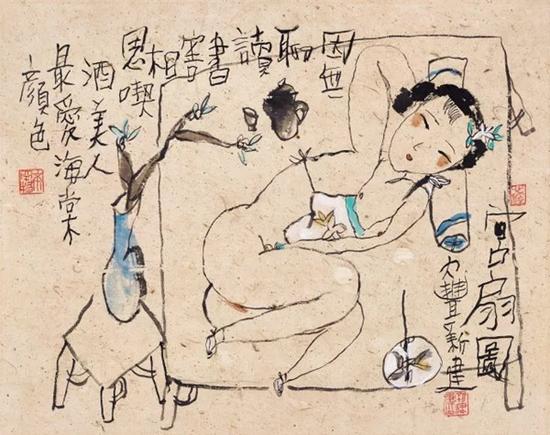 因無
聊
讀
書
害
相
思喫
酒美人
最愛海棠
顏色
宮扇圖
大豐新建